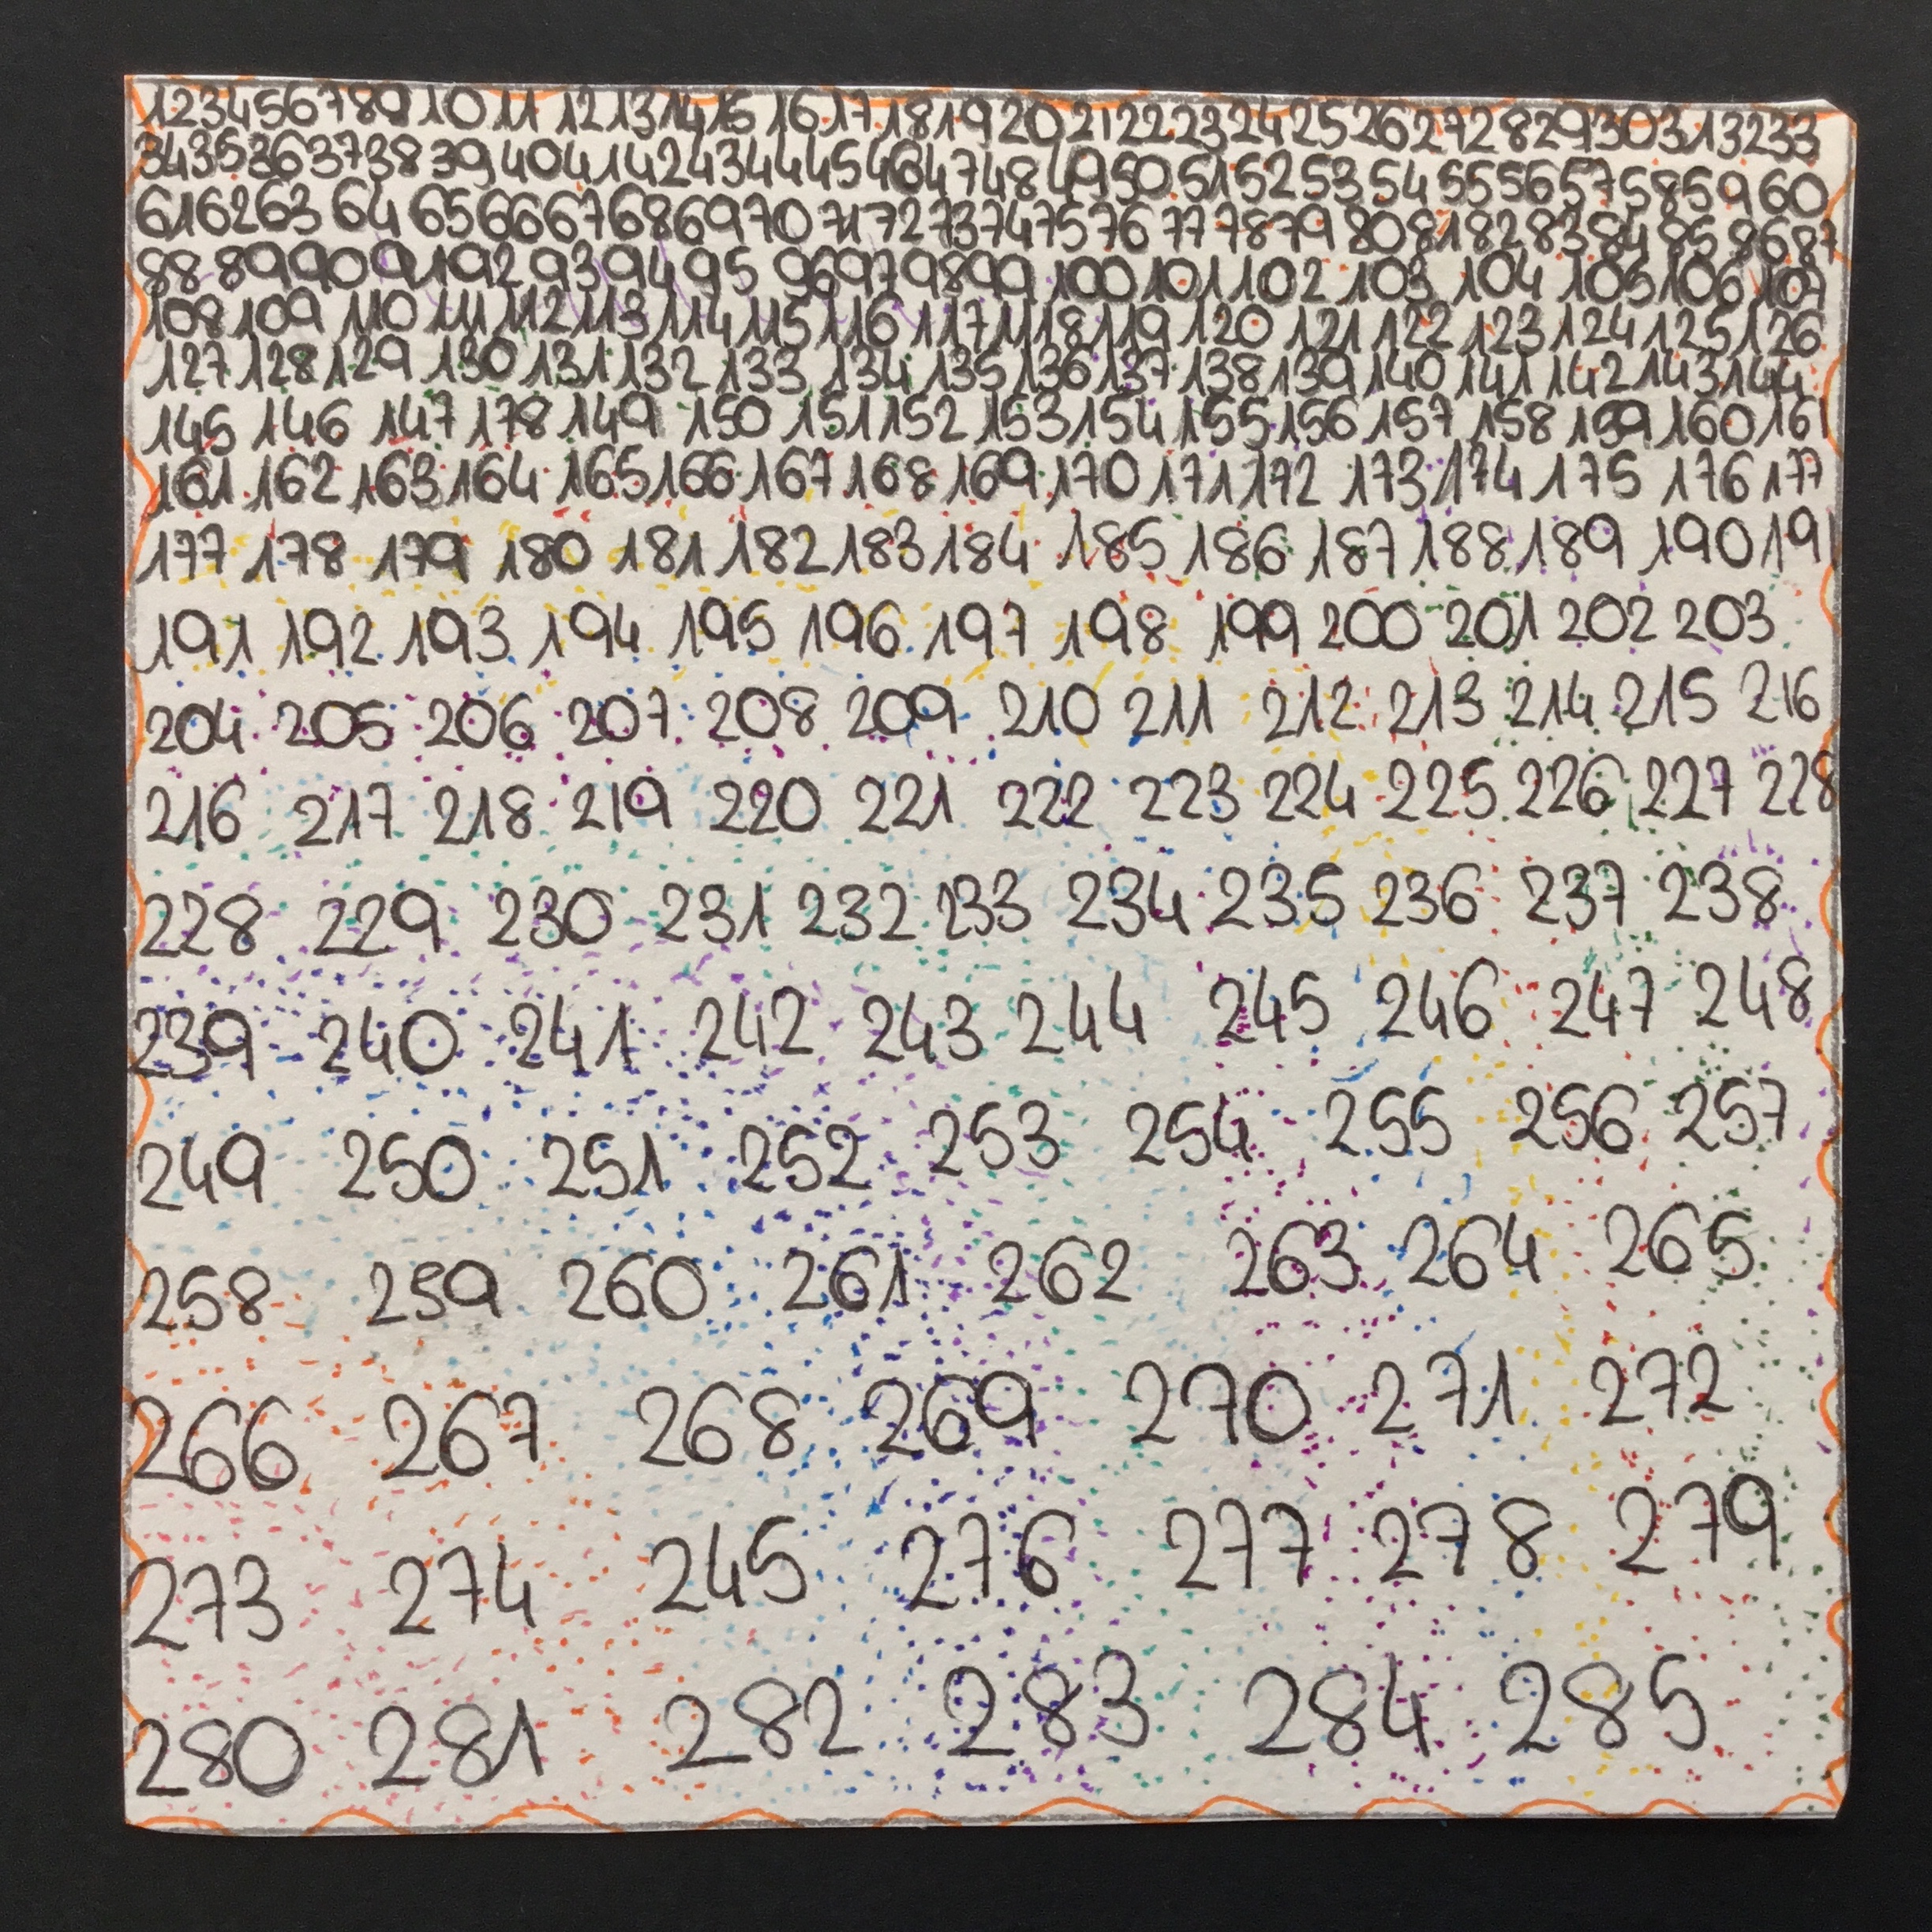 123456789 10 11 12 13 14 15 16 17 18 19 20 21 22 23 24 25 26 27 28 29 30 31 32 33
34 35 36 37 38 39 40 41 42 43 44 45 46 47 48 49 50 51 52 53 54 55 56 57 58 59 60
61 62 63 64 65 66 67 68 69 70 71 72 73 74 75 76 77 78 79 80 81 82 83 84 85 86 87
88 89 90 91 92 93 94 95 96 97 98 99 100 101 102 103 104 105 106 107
108 109 110 111 112 113 114 115 116 117 118 119 120 121 122 123 124 125 126
127 128 129 130 131 132 133 134 135 136 137 138 139 140 141 142 143 144
145 146 147 178 149 150 151 152 153 154 155 156 157 158 159 160 161
161 162 163 164 165 166 167 168 169 170 171 172 173 174 175 176 177
177 178 179 180 181 182 183 184 185 186 187 188 189 190 191
191 192 193 194 195 196 197 198 199 200 201 202 203
204 205 206 207 208 209 210 211 212 213 214 215 216
216 217 218 219 220 221 222 223 224 225 226 227 228
228 229 230 231 232 233 234 235 236 237 238
239 240 241 242 243 244 245 246 247 248
249 250 251 252 253 254 255 256 257
258 259 260 261 262 263 264 265
266 267 268 269 270 271 272
273 274 245 276 277 278 279
280 281 282 283 284 285